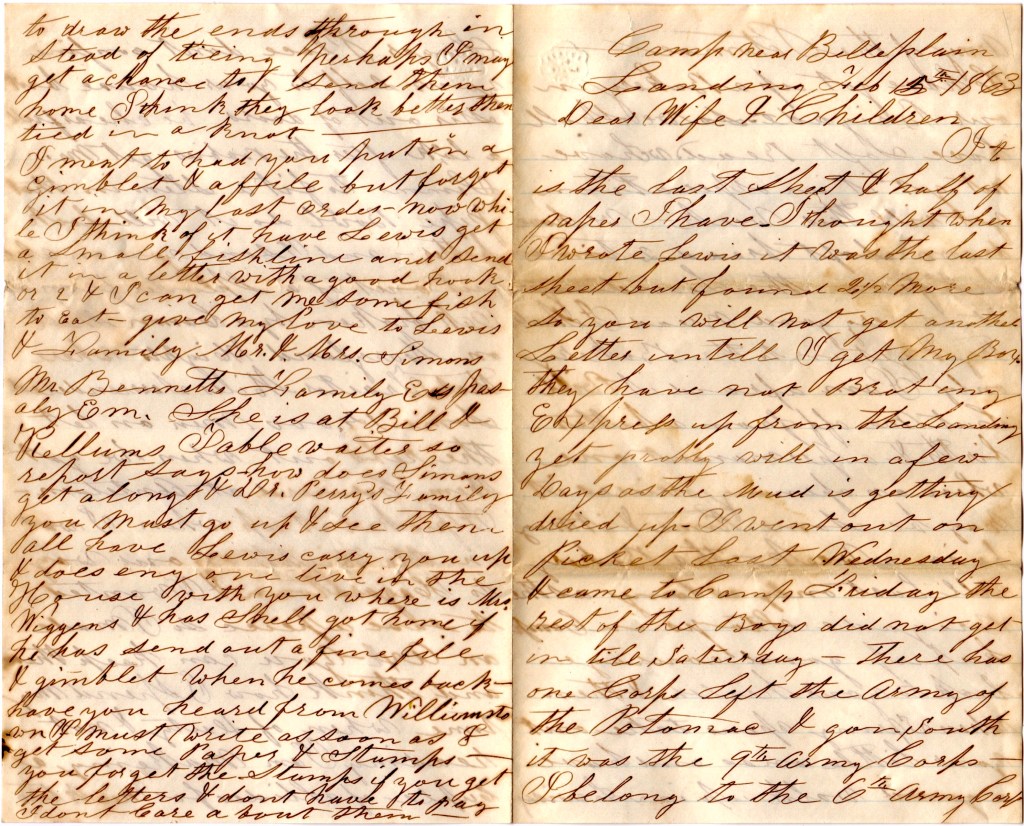 Camp near Belleplain
Landing Feb 15th 1863
Dear Wife & Children
It
is the last Sheet & half of
paper I have I thought when
I wrote Lewis it was the last
sheet but found 2½ more
so you will not get another
Letter untill I get my Box
they have not Brot eny
Express up from the Landing
yet probly will in a few
Days as the mud is getting
dried up - I went out on
Picket last Wednesday
& came to Camp Friday the
rest of the Boys did not get
in till Saturday - There has
one Corps left the Army of
the Potomac & gon South
it was the 9th Army Corps -
I belong to the 6th Army Corp
to draw the ends through in
stead of tieing perhaps I may
get a chance to send them
home I think they look better then
tied in a knot
I ment to had you put in a
Gimblet & a file but forget
it in my last order - now whi-
le I think of it have Lewis get
a small fishline and send
it in a letter with a good hook
or 2 & I can get me some fish
to Eat - give my love to Lewis
& Family Mr. & Mrs. Simons
Mr Bennetts Family Espas-
aly Em. She is at Bill D
Kellums Table waiter so
report says how does Simons
get along & Dr. Perry's Family
you must go up & see them
all have Lewis carry you up
& does eny one live in the
House with you where is Mrs
Wiggens & has Shell got home if
he has send out a fine file
& gimblet when he comes back -
have you heard from Williamsto
wn I must write as soon as I
get some Paper & Stamps -
you forget the Stamps if you get
the letters & dont have to pay
I dont Care about them -